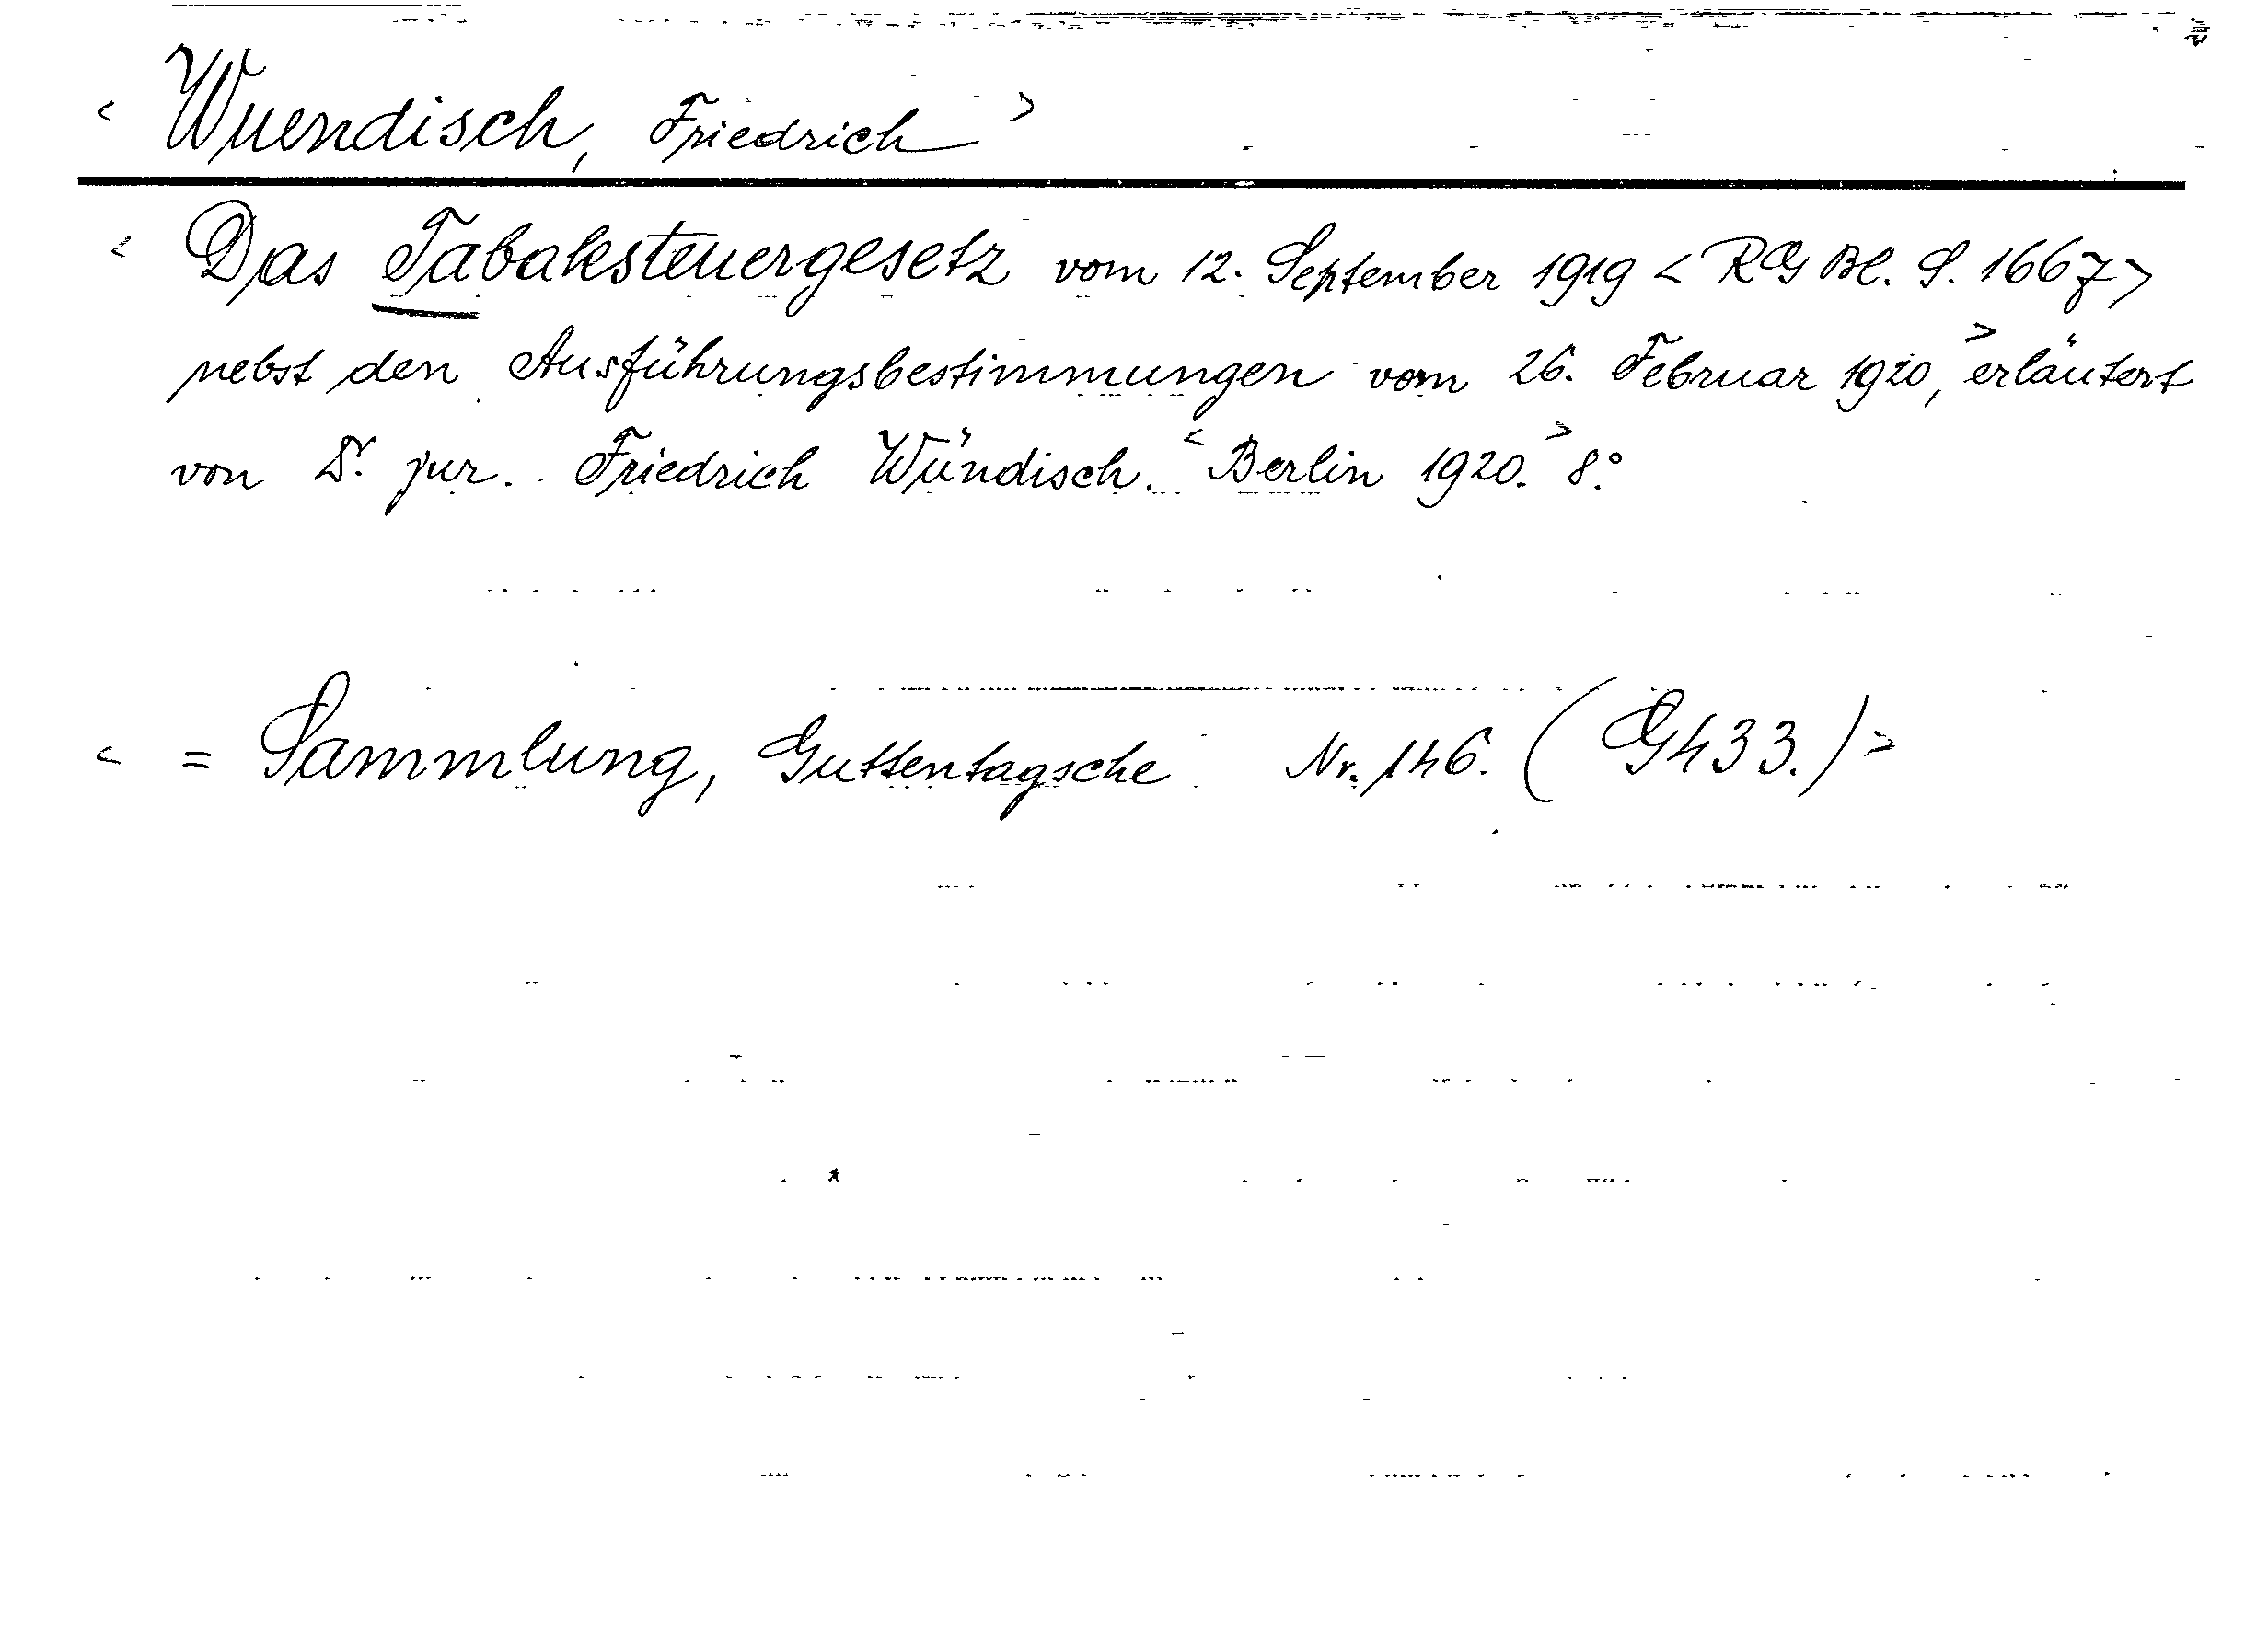 < Wuendisch, Friedrich >
< Das Tabaksteuergesetz vom 12. September 1919 < RGBl. S. 1667>
nebst den Ausführungsbestimmungen vom 26. Februar 1920, > erläutert
von Dr. jur. Friedrich Wündisch. < Berlin 1920. > 8°.
< = Sammlung, Guttentagsche Nr. 146. ( G433.) >